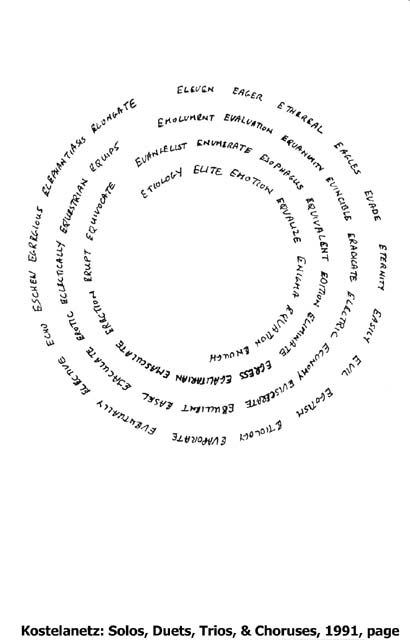 ELEVEN EAGER ETHEREAL EAGLES EVADE ETERNITY EASILY EVIL EGOTISM ETIOLOGY EVAPORATE EVENTUALLY ELECTIVE ECHO ESCHEW EGREGIOUS ELEPHANTIASIS ELONGATE
EMOLUMENT EVALUATION EQUANIMITY EVINCIBLE ERADICATE ELECTRIC ECONOMY EVISCERATE EBULLIENT EASEL EJACULATE EROTIC ECLECTICALLY EQUESTRIAN EQUIPS
EVANGELIST ENUMERATE ESOPHAGUS EQUIVALENT EDITION ELIMINATE EGRESS EGALITARIAN EMASCULATE ERECTION ERUPT EQUIVOCATE
ETIOLOGY ELITE EMOTION EQUALIZE ENIGMA EQUATION ENOUGH
Kostelanetz: Solos, Duets, Trios, & Choruses, 1991, page